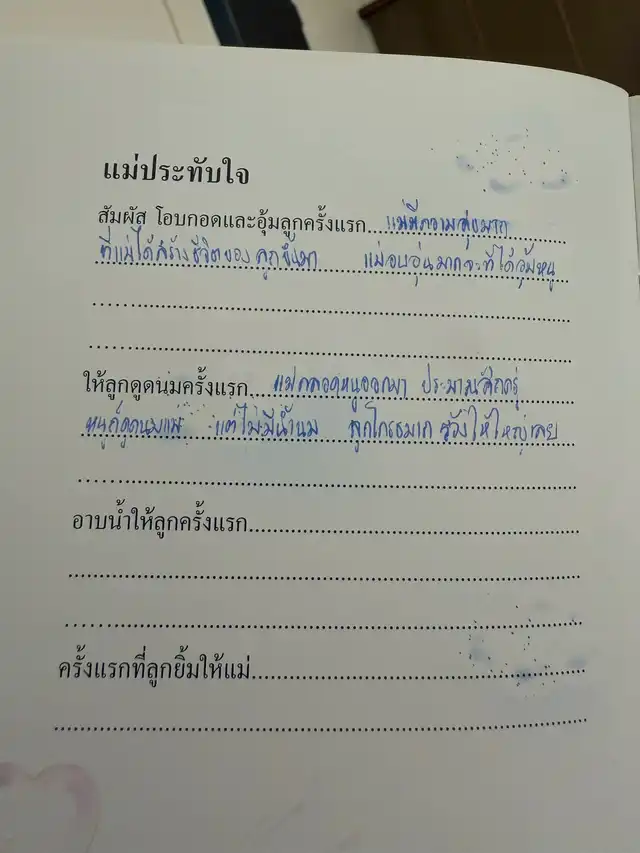 แม่ประทับใจ
สัมผัส โอบกอดและอุ้มลูกครั้งแรก...แม่มีความสุขมาก
ที่แม่ได้สร้างชีวิตของ ลูกขึ้นมา แม่อบอุ่นมากจะที่ได้อุ้มหนู
ให้ลูกดูดนมครั้งแรก...แม่คลอดหนูออกมา ประมาณสักครู่
หนูก็ดูดนมแม่ แต่ไม่มีน้ำนม ลูกโกรธมาก ร้องไห้ใหญ่เลย
อาบน้ำให้ลูกครั้งแรก
ครั้งแรกที่ลูกยิ้มให้แม่